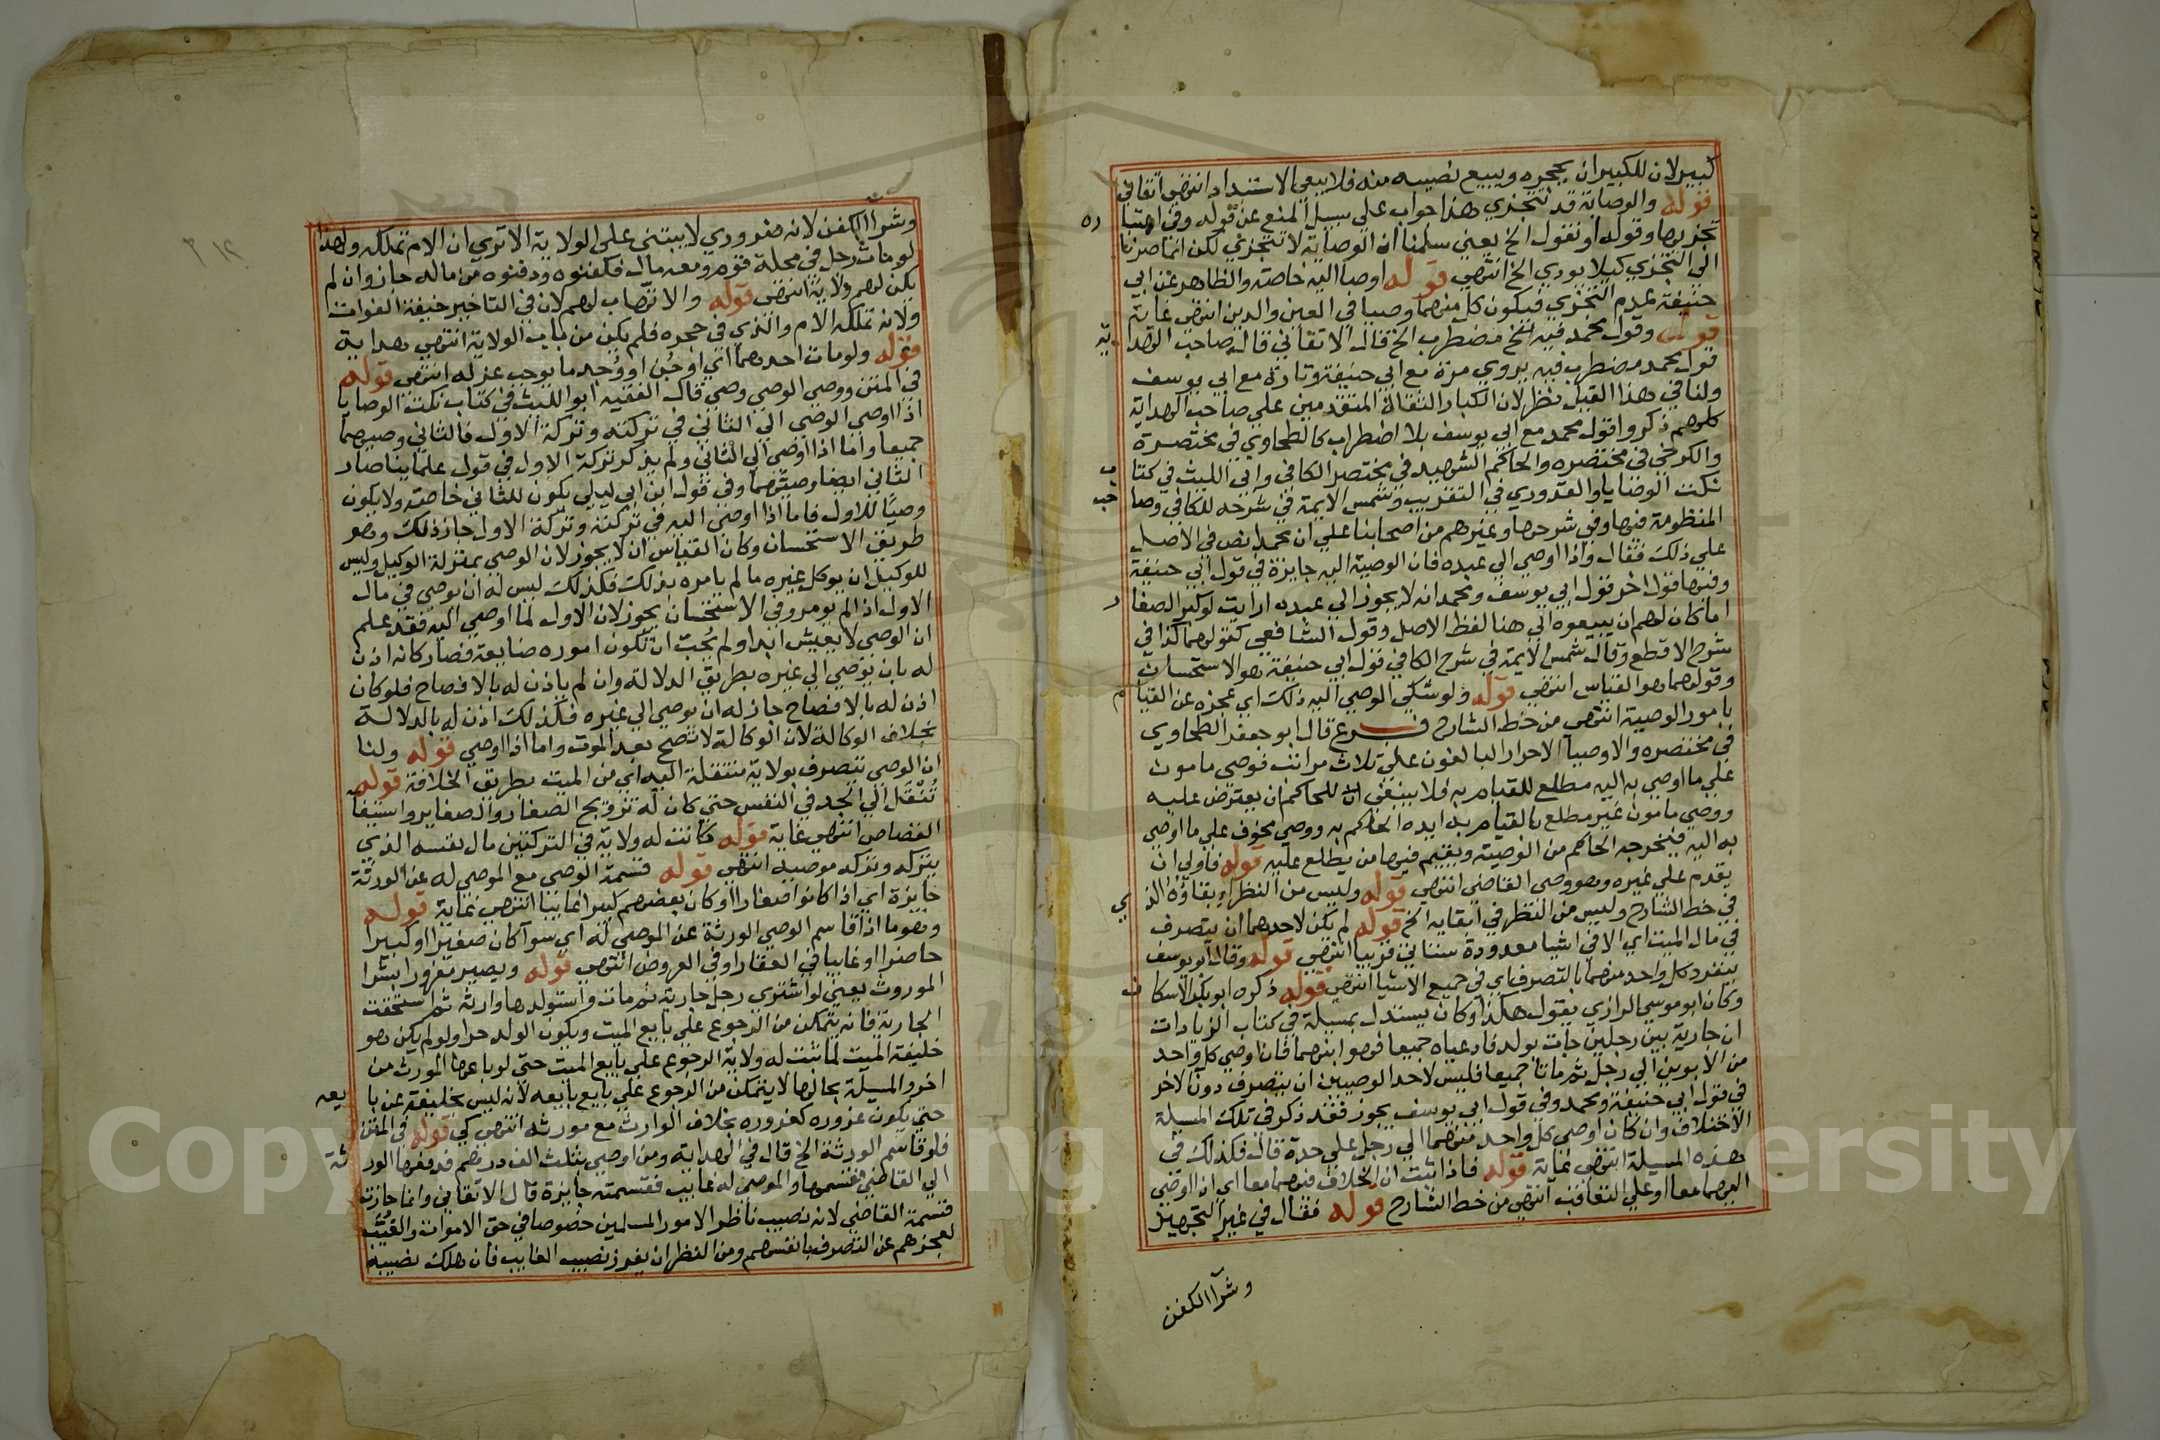 كبير لان للكبير ان يحجره ويبيع نصيبه منه فلا يبقي الاستبداد انتهي اتقاني
قوله والوصاية قد تتجزي هذا جواب علي سبيل المنع عن قوله وفي اعتبا
ره
تجزيها وقوله او نقول الخ يعني سلمنا ان الوصاية لا تتجزي لكن انما صرنا
الي التجزي كيلا يودي الخ انتهي قوله اوصيا اليه خاصة والظاهر عن ابي
حنيفة عدم التجزي فيكون كل منهما وصيا في العين والدين انتهي غاية
قوله وقول محمد فيه الخ مضطرب الخ قال الاتقاني قال صاحب الهدا
ية
قول محمد مضطرب فيه يروي مرة مع ابي حنيفة وتارة مع ابي يوسف
ولنا في هذا القيل نظر لان الكبار الثقاة المتقدمين علي صاحب الهداية
كلهم ذكروا قول محمد مع ابي يوسف بلا اضطراب كالطحاوي في مختصره
والكرخي في مختصره والحاكم الشهيد في مختصر الكافي وابي الليث في كتا
ب
نكت الوصايا والقدوري في التقريب وشمس الايمة في شرحه للكافي وصا
حب
المنظومة فيها وفي شرحها وغيرهم من اصحابنا علي ان محمدا نص في الاصل
علي ذلك فقال واذا اوصي الي عبده فان الوصية اليه جايزة في قول ابي حنيفة
وفيها قول اخر قول ابي يوسف ومحمد انه لا يجوز الي عبده ارايت لو كبر الصغا
ر
اما كان لهم ان يبيعوه الي هنا لفظ الاصل وقول الشافعي كقولهما كذا في
شرح الاقطع وقال شمس الايمة في شرح الكافي قول ابي حنيفة هو الاستحسان
وقولهما هو القياس انتهي قوله ولو شكي الوصي اليه ذلك اي عجزه عن القيا
م
بامور الوصية انتهي من خط الشارح فرع قال ابو جعفر الطحاوي
في مختصره والاوصيا الاحرار البالغون علي ثلاث مراتب فوصي مامون
علي ما اوصي به اليه مطلع للقيام به فلا ينبغي للحاكم ان يعترض عليه
ووصي مامون غير مطلع بالقيام به ايده الحاكم به ووصي مخوف علي ما اوصي
به اليه فيخرجه الحاكم من الوصية ويقيم فيها من يطلع عليه قوله فاولي ان
يقدم علي غيره وهو وصي القاضي انتهي قوله وليس من النظر ابقاؤه الذ
ي
في خط الشارح وليس من النظر في ابقايه الخ قوله لم يكن لاحدهما ان يتصرف
في مال الميت اي الا في اشيا معدودة ستاتي قريبا انتهي قوله وقال ابو يوسف
ينفرد كل واحد منهما بالتصرف اي في جميع الاشيا انتهي قوله ذكره ابو بكر الاسكا
ف
وكان ابو موسي الرازي يقول هكذا وكان يستدل بمسيلة في كتاب الزيادات
ان جارية بين رجلين جات بولد فادعياه جميعا فهو ابنهما فان اوصي كل واحد
من الابوين الي رجل ثم ماتا جميعا فليس لاحد الوصيين ان يتصرف دون الاخر
في قول ابي حنيفة ومحمد وفي قول ابي يوسف يجوز فقد ذكر في تلك المسيلة
الاختلاف وان كان اوصي كل واحد منهما الي رجل علي حدة قال فكذلك في
هذه المسيلة انتهي غاية قوله فاذا ثبت ان الخلاف فيهما معا اي اذا اوصي
اليهما معا او علي التعاقب انتهي من خط الشارح قوله فقال في غير التجهيز
وشرا الكفن
وشرا الكفن لانه ضروري لا يبتني علي الولاية الا تري ان الام تملكه ولهذا
لو مات رجل في محلة قوم ومعه مال فكفنوه ودفنوه من ماله جاز وان لم
يكن لهم ولاية انتهي قوله والاتهاب لهم لان في التاخير خيفة الفوات
ولانه تملكه الام والذي في حجره فلم يكن من باب الولاية انتهي هداية
قوله ولو مات احدهما اي او جن او وجد ما يوجب عزله انتهي قوله
في المتن ووصي الوصي وصي قال الفقيه ابو الليث في كتاب نكت الوصايا
اذا اوصي الوصي الي الثاني في تركته وتركة الاول فالثاني وصيهما
جميعا واما اذا اوصي الي الثاني ولم يذكر تركة الاول في قول علماينا صار
الثاني ايضا وصيهما وفي قول ابن ابي ليلي يكون للثاني خاصة ولا يكون
وصيا للاول فاما اذا اوصي اليه في تركته وتركة الاول جاز ذلك وهو
طريق الاستحسان وكان القياس ان لا يجوز لان الوصي بمنزلة الوكيل وليس
للوكيل ان يوكل غيره ما لم يامره بذلك فكذلك ليس له ان يوصي في مال
الاول اذ الم يومر وفي الاستحسان يجوز لان الاول لما اوصي اليه فقد علم
ان الوصي لا يعيش ابدا ولم يحب ان تكون اموره ضايعة فصار كانه اذن
له بان يوصي الي غيره بطريق الدلالة وان لم ياذن له بالافصاح فلو كان
اذن له بالافصاح جاز له ان يوصي الي غيره فكذلك اذن له بالدلالة
بخلاف الوكالة لان الوكالة لا تصح بعد الموت واما اذا اوصي قوله ولنا
ان الوصي يتصرف بولاية منتقلة اليه اي من الميت بطريق الخلافة قوله
تنتقل الي الجد في النفس حتي كان له تزويج الصغار والصغاير واستيفا
القصاص انتهي غاية قوله كانت له ولاية في التركتين مال نفسه الذي
يتركه وتركة موصيه انتهي قوله قسمة الوصي مع الموصي له عن الورثة
جايزة اي اذا كانوا صغارا او كان بعضهم كبيرا غايبا انتهي غاية قوله
وهو ما اذا قاسم الوصي الورثة عن الموصي له اي سوا كان صغيرا او كبيرا
حاضرا او غايبا في العقار او في العروض انتهي قوله ويصير مغرورا بشرا
الموروث يعني لو اشتري رجل جارية ثم مات واستولدها وارثه ثم استحقت
الجارية فانه يتمكن من الرجوع علي بايع الميت ويكون الولد حرا ولو لم يكن هو
خليفة الميت لما ثبت له ولاية الرجوع علي بايع الميت حتي لو باعها المورث من
اخر والمسيلة بحالها لا يتمكن من الرجوع علي بايع بايعه لانه ليس بخليفة عن با
يعه
حتي يكون غروره كغروره بخلاف الوارث مع مورثه انتهي كي قوله في المتن
فلو قاسم الورثة الخ قال في الهداية ومن اوصي بثلث الف درهم فدفعها الور
ثة
الي القاضي فقسمها والموصي له غايب فقسمته جايزة قال الاتقاني وانما جازت
قسمة القاضي لانه نصيب ناظر الامور المسلمين خصوصا في حق الاموات والغيب
لعجزهم عن التصرف بانفسهم ومن النظر ان يفرز نصيب الغايب فان هلك نصيبه
Copy King ersity